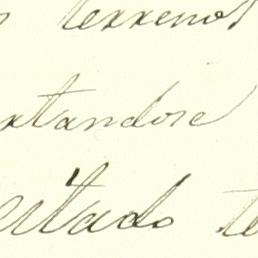 terrenos
xtandose
citado te